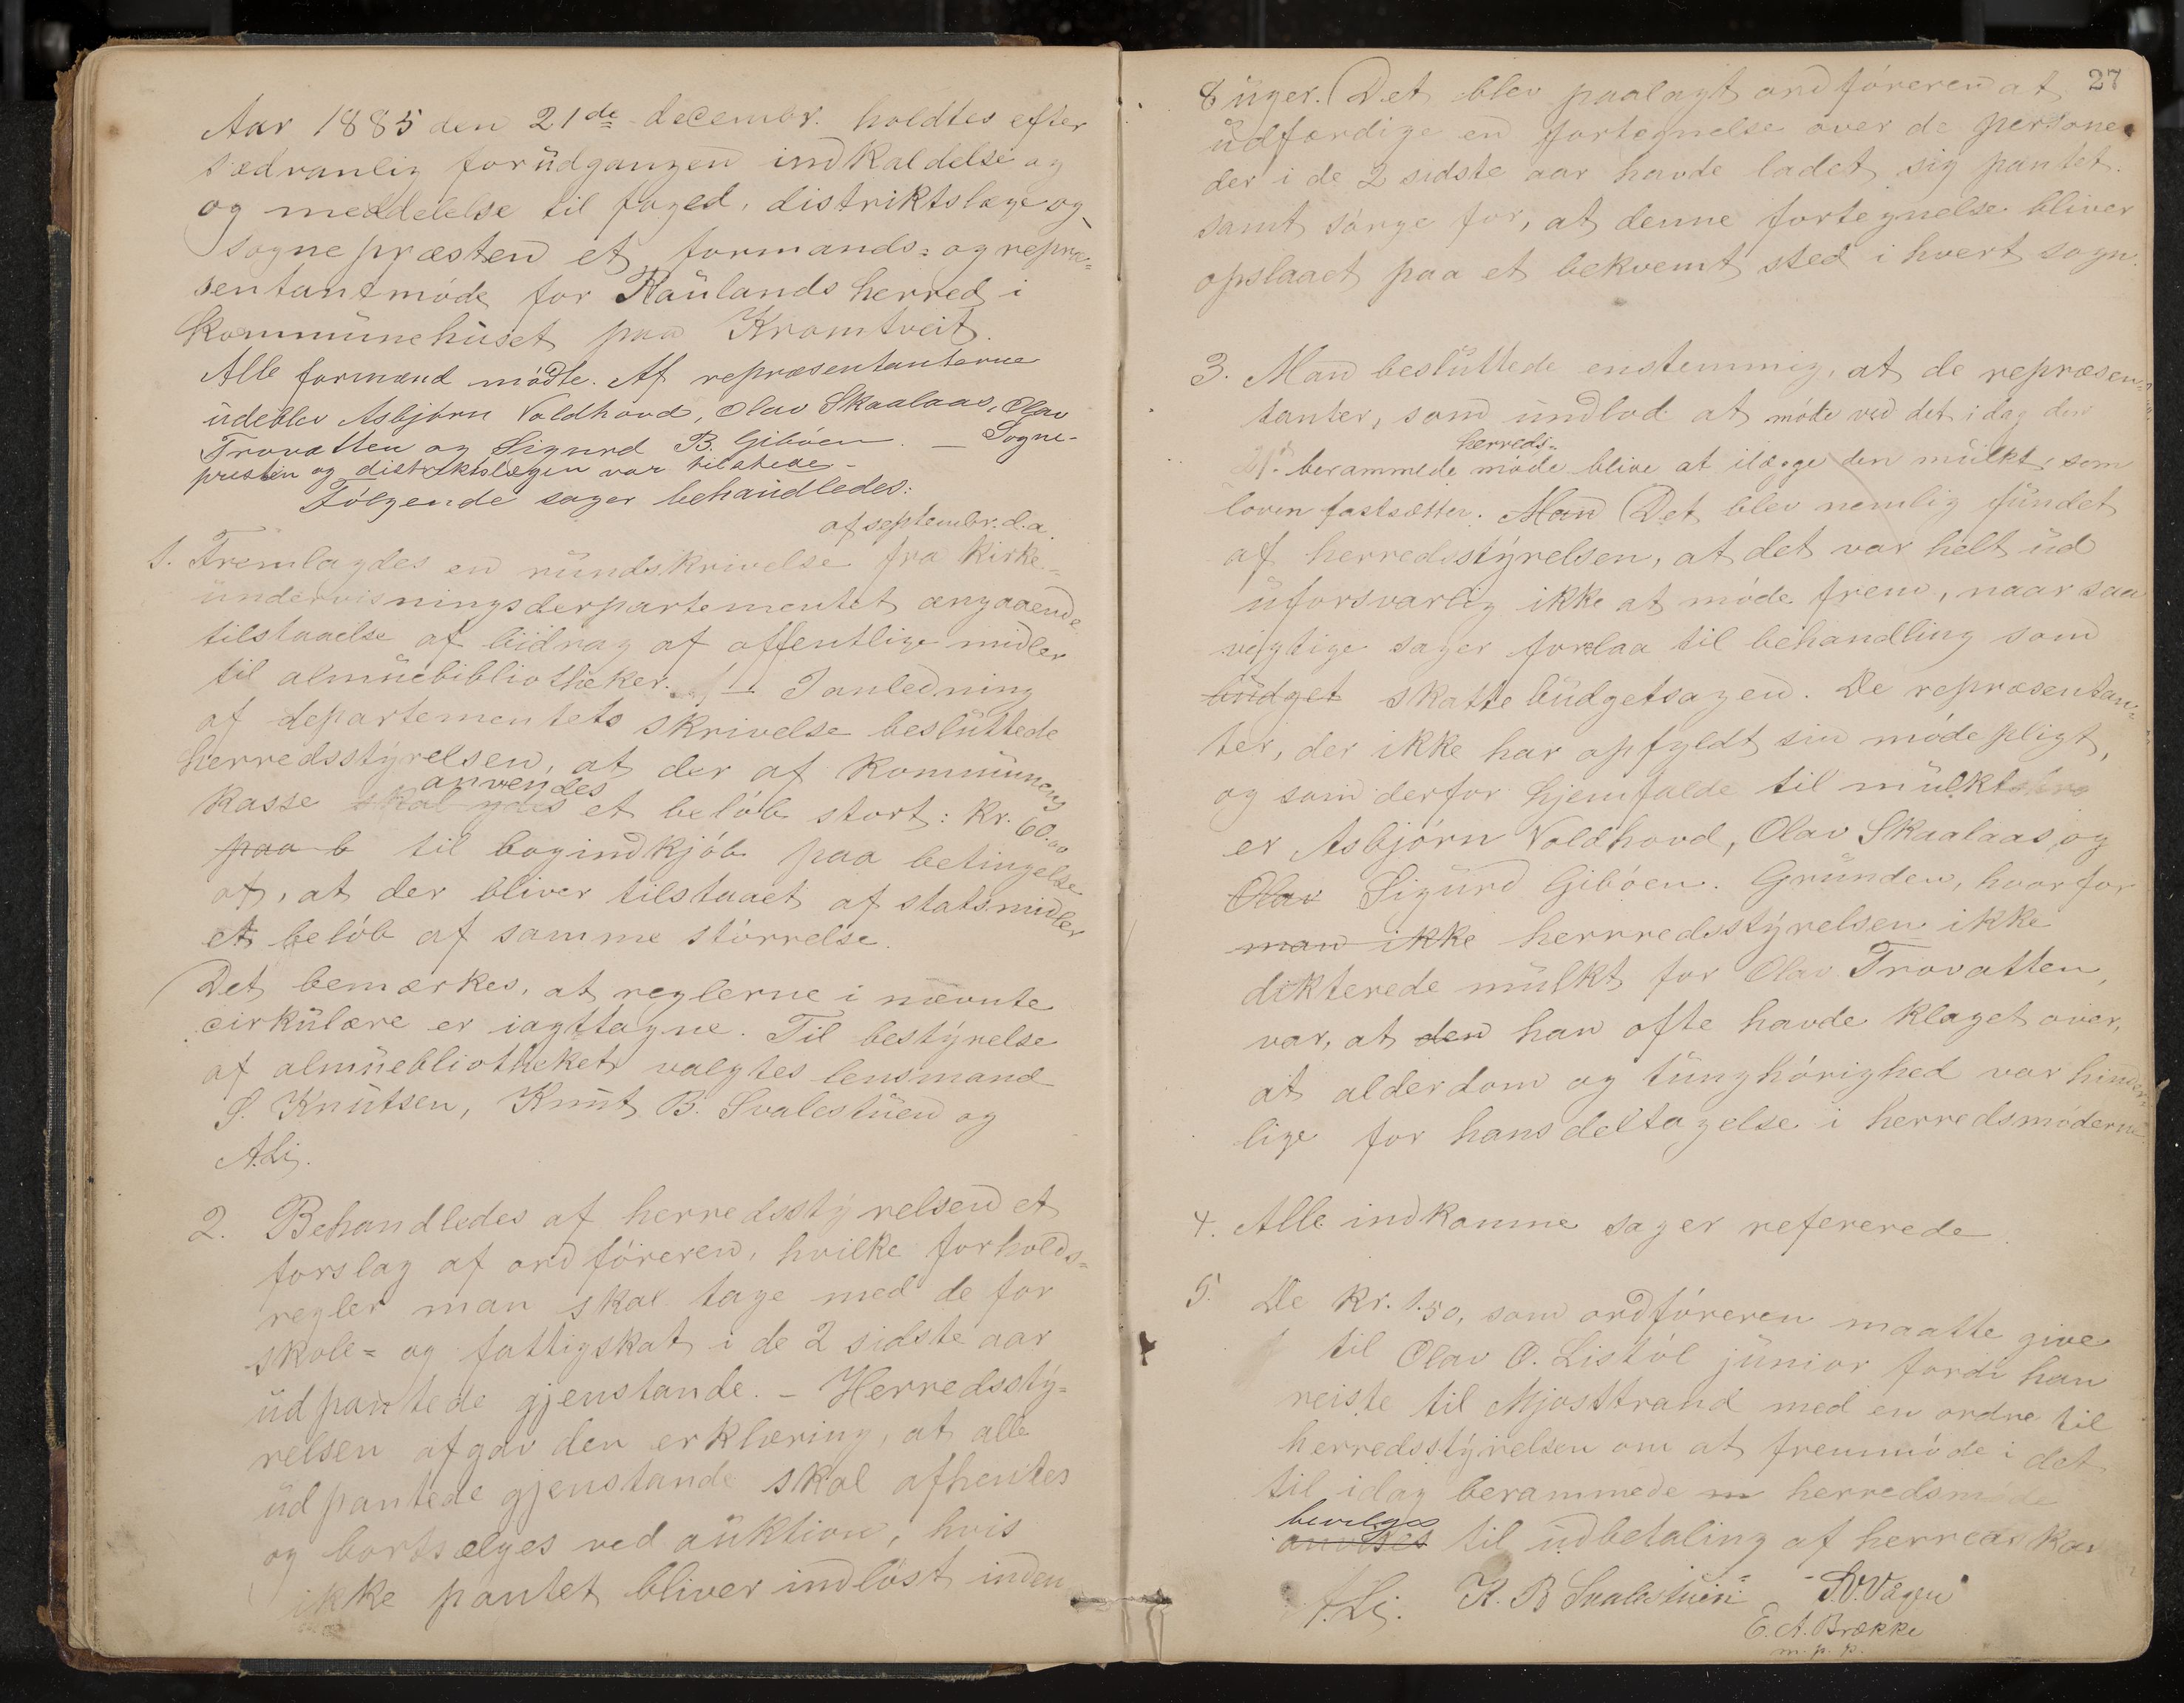 Aar 1885 den 21de decembr. holdtes efter
sædvanlig forudgangen indkaldelse og
og meddelelse til foged, distriktslæge og
sognepræsten et formands- og repræ-
sentantmöde for Raulands herred i
kommunehuset paa Kromtveit.
Alle formænd mödte. Af repræsentanterne
udeblev Asbjörn Voldhovd, Olav Skaalaas, Olav
Trovatten og Sigurd B. Giböen. — Sogne-
presten og distriktslægen var tilstede -
Fölgende sager behandledes:
af septembr. d. a.
1. Fremlagdes en rundskrivelse fra Kirke-
undervisningsderpartementet angaaende
tilstaaelse af bidrag af offentlige midler
til almuebibliotheker. I anledning
af departementets skrivelse besluttede
herredsstyrelsen, at der af kommunens
anvendes
kasse skal ydes et belöb stort: kr. 60.00
paa b til bogindkjöb paa betingelse
af, at der bliver tilstaaet af statsmidler
et belöb af samme störrelse.
Det bemærkes, at reglerne i nævnte
cirkulære er iagttagne. Til bestyrelse
af almuebliotheket valgtes lensmand
S. Knutsen, Knut B. Svalestuen og
A. Li.
2. Behandledes af herredsstyrelsen et
forslag af ordföreren, hvilke forholds-
regler man skal tage med de for
skole- og fattigskat i de 2 sidste aar
udpantede gjenstande. - Herredssty-
relsen afgav den erklæring, at alle
udpantede gjenstande skal afhentes
og bortsælges ved auktion, hvis
ikke pantet bliver indlöst inden
27
8 uger. Det blev paalagt ordföreren at
udfærdige en fortegnelse over de persone
der i de 2 sidste aar havde ladet sig pantet.
samt sörge for, at denne fortegnelse bliver
opslaaet paa et bekvemt sted i hvert sogn.
3. Man besluttede enstemmig, at de repræsen-
tanter, som undlod at möde ved det idag den
herreds-
21. berammede möde blive at ilægge den mulkt, som
loven fastsætter. Man Det blev nemlig fundet
af herredsstyrelsen, at det var helt ud
uforsvarlig ikke at möde frem, naar saa
vigtige sager forelaa til behandling som
budget skattebudgetsagen. De repræsentan-
ter, der ikke har opfyldt sin mödepligt,
og som derfor hjemfalde til mulkt
er Asbjörn Voldhovd, Olav Skaalaas, og
Olav Sigurd Giböen. Grunden, hvorfor
man ikke herrredsstyrelsen ikke
dikterede mulkt for Olav Trovatten,
var, at den han ofte havde klaget over,
at alderdom og tunghörighed var hinder-
lige for hans deltagelse i herredsmöderne.
4. Alle indkomne sager refererede.
5. De kr. 1.50, som ordföreren maatte give
til Olav O. Listöl junior fordi han
reiste til Mjosstrand med en ordre til
herredsstyrelsen om at fremmöde i det
til idag berammede m herredsmöde
bevilges
anvises til udbetaling af herredskas
A. Li. K. B Svalestuen S. V. Vågen
E. A. Brække
m. p. p.